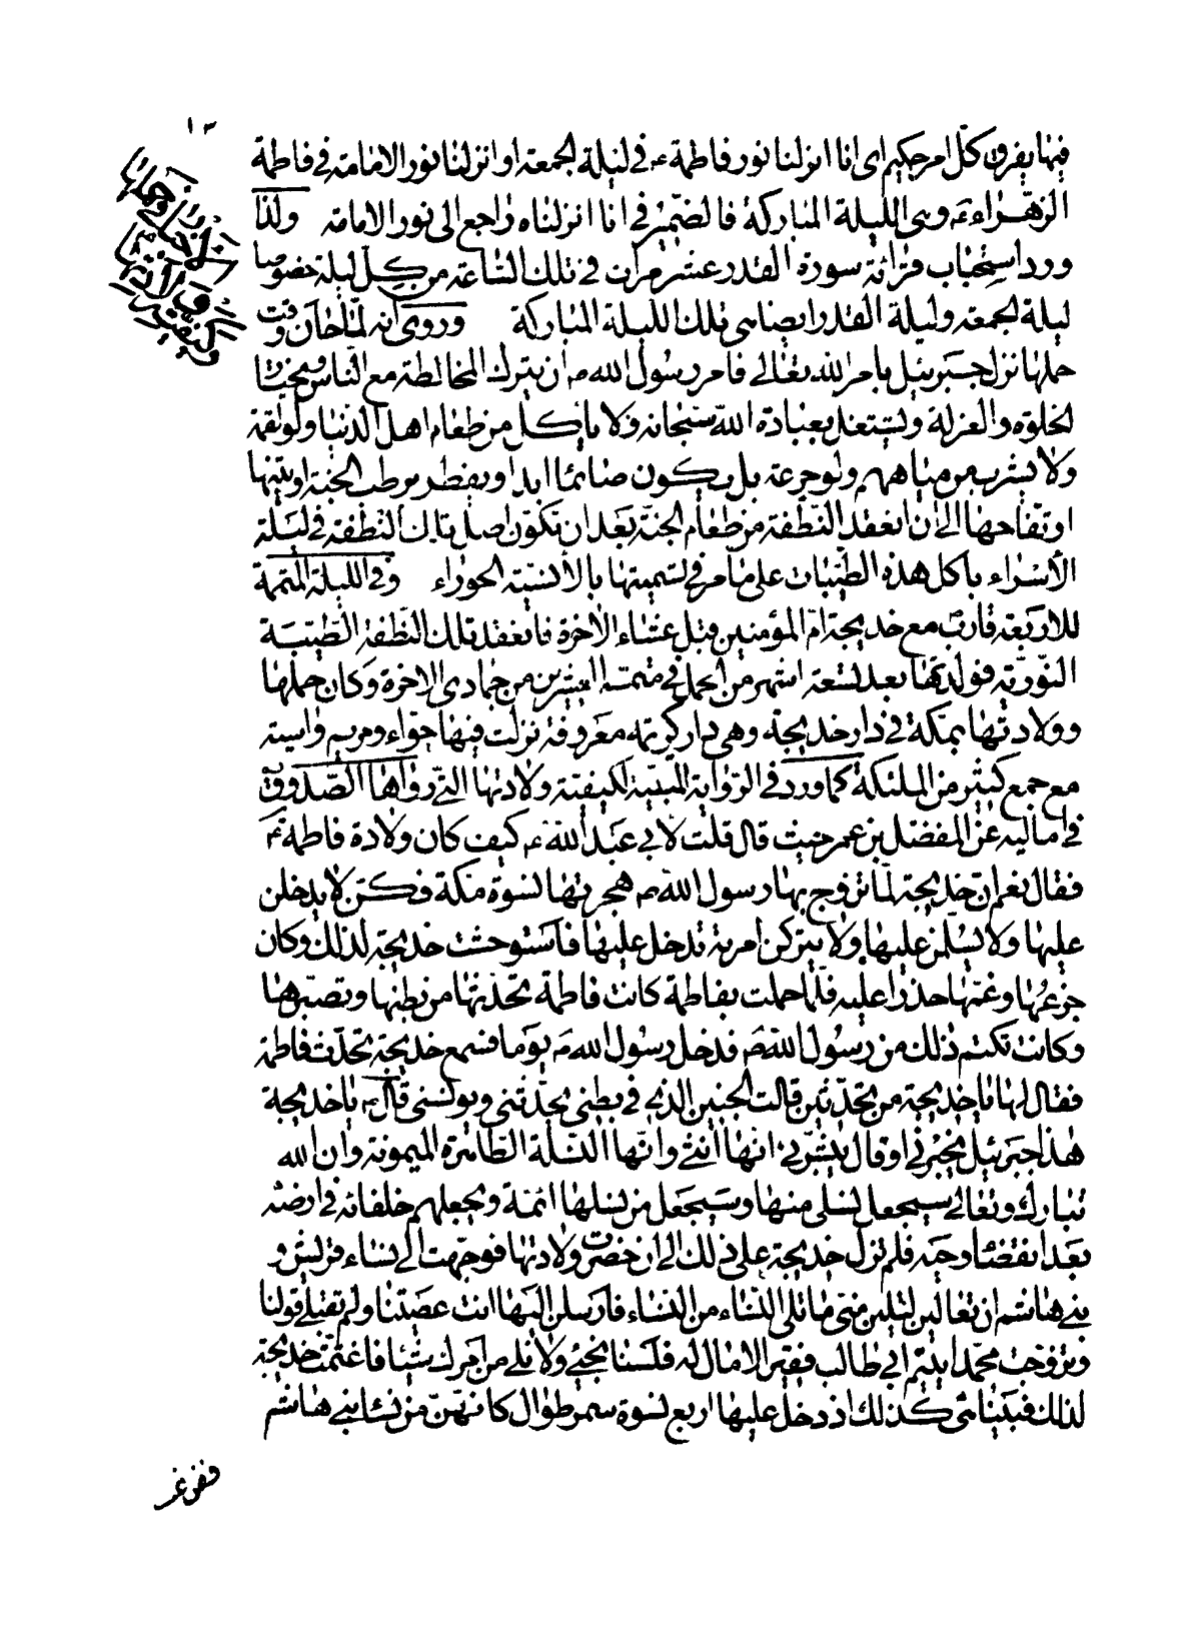 ١٣
فيها يفرق كل امر حكيم اى انا انزلنا نور فاطمة ع في ليلة الجمعة او انزلنا نور الامامة في فاطمة
الزهراء ع وهى الليلة المباركة فالضمير في انا انزلناه راجع الى نور الامامة ولذا
ورد استحباب قرائة سورة القدر عشر مرات في تلك الساعة من كل ليلة خصوصا
ليلة الجمعة وليلة القدر ايضا هى تلك الليلة المباركة وروى انه لما حان وقت
حملها نزل جبرئيل بامر الله تعالى فامر رسول الله ص ان يترك المخالطة مع الناس ويختار
الخلوة والعزلة ويشتغل بعبادة الله سبحانه ولا ياكل من طعام اهل الدنيا ولو لقمة
ولا يشرب من مياههم ولو جرعة بل يكون صائما ابدا ويفطر برطب الجنة او تينها
او تفاحها الى ان انعقد النطفة من طعام الجنة بعد ان تكون اصل تلك النطفة في ليلة
الاسراء باكل هذه الطيبات على ما مر في تسميتها بالانسية الحوراء وفى الليلة المتممة
للاربعة قارب مع خديجة ام المؤمنين قبل عشاء الاخرة فانعقد تلك النطفة الطيبة
النورية فولدتها بعد تسعة اشهر من الحمل في متمته العشرين من جمادى الاخرة وكان حملها
وولادتها بمكة في دار خديجة وهى دار كريمة معروفة نزلت فيها حواء ومريم واسية
مع جمع كثير من الملئكة كما ورد في الرواية المبينة لكيفية ولادتها التى رواها الصدوق
في اماليه عن المفضل بن عمر حيث قال قلت لابى عبد الله ع كيف كان ولادة فاطمة ع
فقال نعم ان خديجة لما تزوج بها رسول الله ص هجرتها نسوة مكة فكن لا يدخلن
عليها ولا يسلمن عليها ولا يتركن امرية تدخل عليها فاستوحشت خديجة لذلك وكان
جزعها وغمها حذرا عليه فلما حملت بفاطمة كانت فاطمة تحدثها من بطنها وتصبرها
وكانت تكتم ذلك من رسول الله ص فدخل رسول الله ص يوما فسمع خديجة تحدث فاطمة
فقال لها يا خديجة من تحدثين قالت الجنين الذى في بطنى يحدثنى ويونسنى قال ص يا خديجة
هذا جبرئيل يخبرنى او قال يبشرنى انها انثى وانها النسلة الطاهرة الميمونة وان الله
تبارك وتعالى سيجعل نسلى منها وسيجعل من نسلها ائمة ويجعلهم خلفائه في ارضه
بعد انقضاء وحيه فلم تزل خديجة على ذلك الى ان حضرت ولادتها فوجهت الى نساء قريش و
بنى هاشم ان تعالين لتلين منى ما تلى النساء من النساء فارسلن اليها انت عصيتنا ولم تقبلى قولنا
وتزوجت محمدا يتيم ابى طالب فقيرا لا مال له فلسنا نجئ ولا نلى من امرك شيئا فاغتمت خديجة
لذلك فبينا هى كذلك اذ دخل عليها اربع نسوة سمر طوال كانهن من نساء بنى هاشم
ففزعت